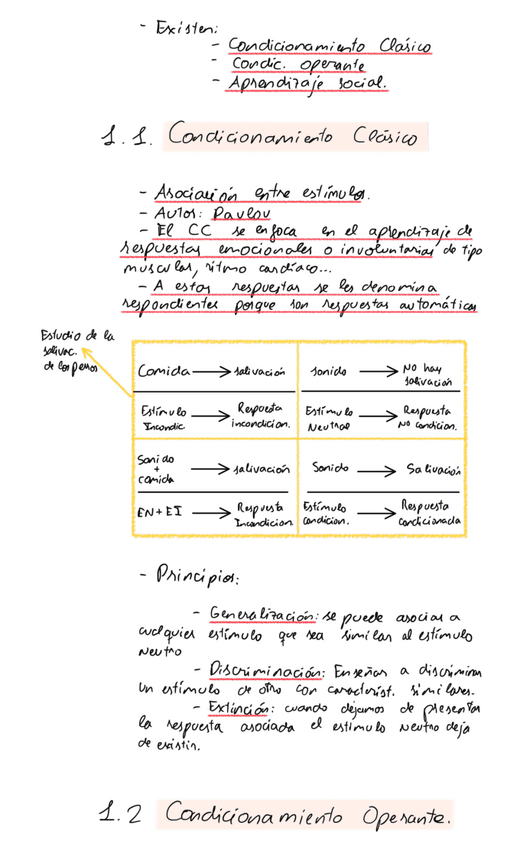 - Existen:
- Condicionamiento Clásico
- Condic. operante
- Aprendizaje social.
1.1. Condicionamiento Clásico
- Asociación entre estímulos.
- Autor: Pavlov
- El CC se enfoca en el aprendizaje de
respuestas emocionales o involuntarias de tipo
muscular, ritmo cardíaco...
- A estas respuestas se les denomina
respondientes porque son respuestas automáticas
Estudio de la
salivac.
de los perros
Comida → salivación
sonido → No hay
salivación
Estímulo → Respuesta
Incondic incondicion.
Estímulo → Respuesta
Neutral No condicion.
Sonido
+ → salivación
comida
Sonido → Salivación
EN + EI → Respuesta
Incondicion
Estímulo → Respuesta
condicion. condicionada
- Principios:
- Generalización: se puede asociar a
cualquier estímulo que sea similar al estímulo
neutro
- Discriminación: Enseñar a discriminar
un estímulo de otro con caracterist. similares.
- Extinción: cuando dejamos de presentar
la respuesta asociada el estimulo neutro deja
de existir.
1.2 Condicionamiento Operante.